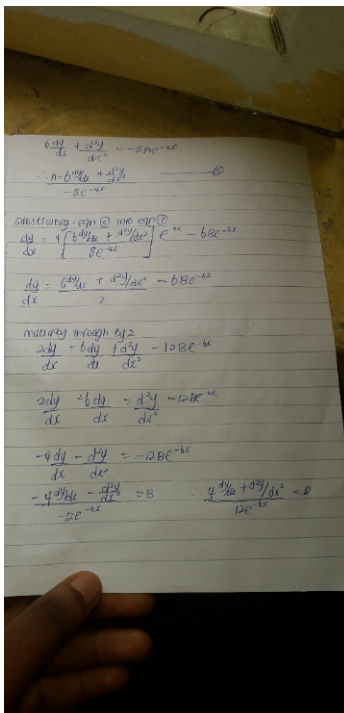 6dy/dx + d²y/dx² = -8Ae^-4x
∴ A = 6dy/dx + d²y/dx² / -8e^-4x
Substituting eqn into eqn
dy/dx = 4 [6dy/dx + d²y/dx² / 8e^-4x] e^-4x - 6Be^-6x
dy/dx = 6dy/dx + d²y/dx² / 2 - 6Be^-6x
multiply through by 2
2dy/dx = 6dy/dx + d²y/dx² - 12Be^-6x
2dy/dx - 6dy/dx = d²y/dx² - 12Be^-6x
-4dy/dx - d²y/dx² = -12Be^-6x
-4dy/dx - d²y/dx² / -12e^-6x = B ∴ 4dy/dx + d²y/dx² / 12e^-6x = B